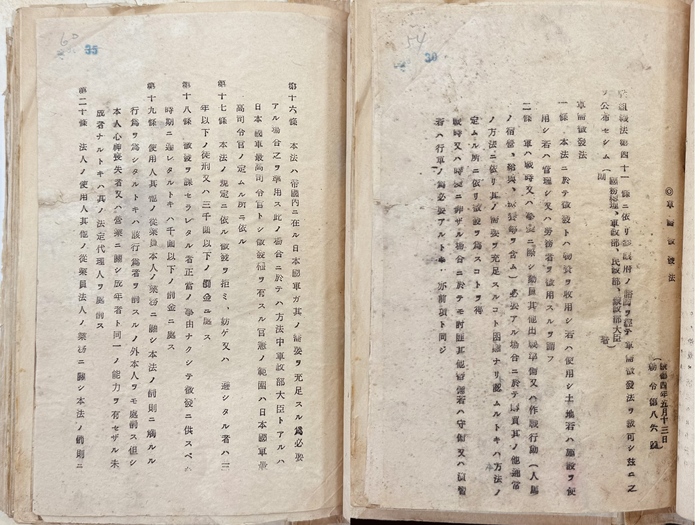 ◎軍需徵發法
(康德四年五月十三日
勅令第八六號)
組織法第四十一條ニ依リ參議府ノ諮詢ヲ經テ軍需徵發法ヲ裁可シ玆ニ之
ヲ公布セシム
(國務總理、軍政部、民政部、蒙政部大臣
軍需徵發法
一條 本法ニ於テ徵發トハ物資ヲ收用シ若ハ使用シ土地若ハ施設ヲ使
用シ若ハ管理シ又ハ勞務者ヲ徵用スルヲ謂フ
二條 軍ハ戰時又ハ事變ニ際シ動員其他出戰準備又ハ作戰行動(人馬
ノ宿營、給養、演習等ヲ含ム)必要アル場合ニ於テ購買其ノ他通常
ノ方法ニ依リ其ノ需要ヲ充足スルコト困難ナリト認ムルトキハ方法ノ
定ムル所ニ依リ徵發ヲ爲スコトヲ得
戰時又ハ事變ニ非ザル場合ニ於テモ討匪其他警備若ハ守備又ハ演習
若ハ行軍ノ爲必要アルトキ亦前項ト同ジ
35
第十六條 本法ハ帝國內ニ在ル日本國軍ガ其ノ需要ヲ充足スル爲必要
アル場合之ヲ準用ス此ノ場合ニ於テハ方法中軍政部大臣トアルハ
日本國軍最高司令官トシ徵發權ヲ有スル官憲ノ範圍ハ日本國軍最
高司令官ノ定ムル所ニ依ル
第十七條 本法ノ規定ニ依ル徵發ヲ拒ミ、妨ゲ又ハ 避シタル者ハ三
年以下ノ徒刑又ハ三千圓以下ノ罰金ニ處ス
第十八條 徵發ヲ課セラレタル者正當ノ事由ナクシテ徵發ニ供スベキ
時期ニ遲レタルトキハ千圓以下ノ罰金ニ處ス
第十九條 使用人其他ノ從業員本人ノ業務ニ關シ本法ノ罰則ニ觸ルル
行爲ヲ爲シタルトキハ該行爲者ヲ罰スルノ外本人ヲモ處罰ス但シ
本人心神喪失者又ハ營業ニ關シ成年者ト同一ノ能力ヲ有セザル未
成者ナルトキハ其ノ法定代理人ヲ處罰ス
第二十條 法人ノ使用人其他ノ從業員法人ノ業務ニ關シ本法ノ罰則ニ